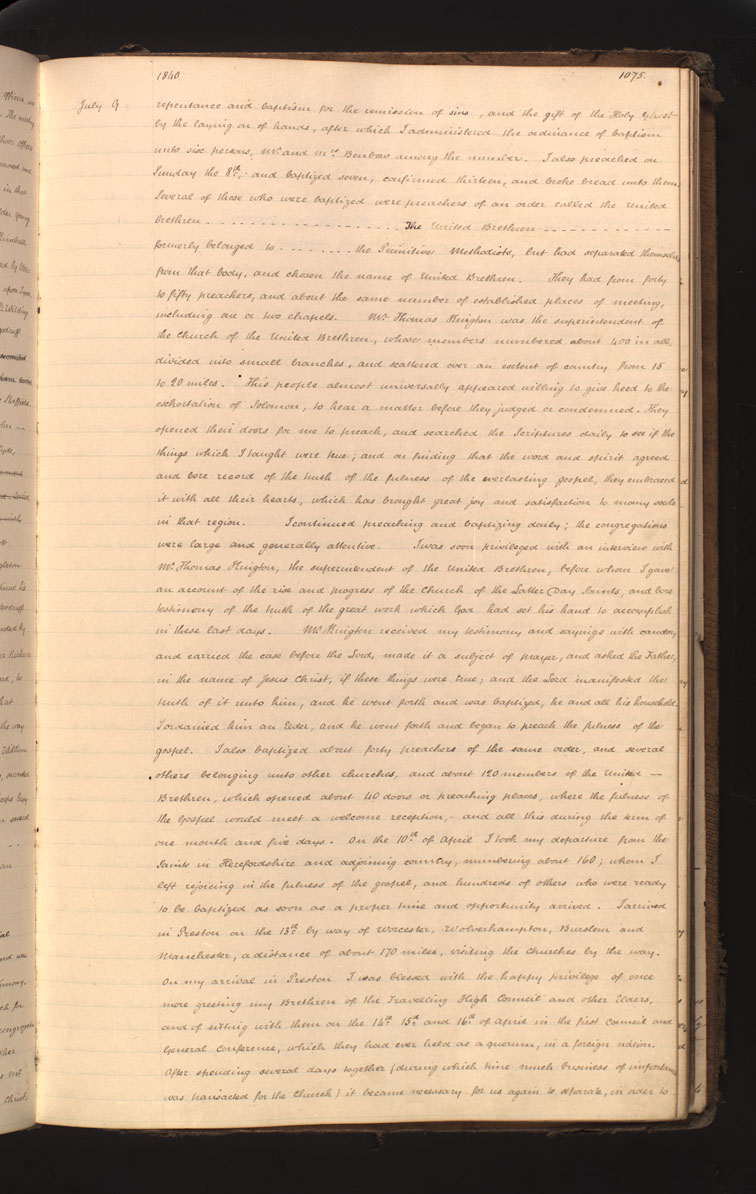 1840
1075
July 9
repentance and baptism for the remission of sins, and the gift of the Holy Ghost
by the laying on of hands, after which I administered the ordinance of baptism
unto six persons, Mr. and Mrs. Benbow among the number. I also preached on
Sunday the 8th, and baptized seven, confirmed thirteen, and broke bread unto them
Several of those who were baptized were preachers of an order called the United
brethren - - - - - - - - - - - - - - - - - The United Brethren - - - - - - - - - - -
formerly belonged to - - - - - - - the Primitive Methodists, but had separated themselves
from that body, and chosen the name of United Brethren. They had from forty
to fifty preachers, and about the same number of established places of meeting,
including one or two chapels. Mr. Thomas Kington was the superintendent of
the Church of the United Brethren, whose members numbered about 400 in all,
divided into small branches, and scattered over an extent of country from 15
to 20 miles. This people almost universally appeared willing to give heed to the
exhortation of Solomon, to hear a matter before they judged or condemned. They
opened their doors for me to preach, and searched the Scriptures daily to see if the
things which I taught were true; and on finding that the word and spirit agreed
and bore record of the truth of the fulness of the everlasting gospel, they embraced
it with all their hearts, which has brought great joy and satisfaction to many souls
in that region. I continued preaching and baptizing daily; the congregations
were large and generally attentive. I was soon privileged with an interview with
Mr. Thomas Kington, the superintendent of the United Brethren, before whom I gave
an account of the rise and progress of the Church of the Latter Day Saints, and bore
testimony of the truth of the great work which God had set his hand to accomplish
in these last days. Mr. Kington received my testimony and sayings with candor,
and carried the case before the Lord, made it a subject of prayer, and asked the Father,
in the name of Jesus Christ, if these things were true; and the Lord manifested the
truth of it unto him, and he went forth and was baptized, he and all his household.
I ordained him an Elder, and he went forth and began to preach the fulness of the
gospel. I also baptized about forty preachers of the same order, and several
others belonging unto other churches, and about 120 members of the United —
Brethren, which opened about 40 doors or preaching places, where the fulness of
the Gospel would meet a welcome reception, - and all this during the term of
one month and five days. On the 10th of April I took my departure from the
Saints in Herefordshire and adjoining country, numbering about 160; whom I
left rejoicing in the fulness of the gospel, and hundreds of others who were ready
to be baptized as soon as a proper time and opportunity arrived. I arrived
in Preston on the 13th by way of Worcester, Wolverhampton, Burslem and
Manchester, a distance of about 170 miles, visiting the Churches by the way.
On my arrival in Preston I was blessed with the happy privilege of once
more greeting my Brethren of the Travelling High Council and other Elders,
and of sitting with them on the 14th 15th and 16th of April in the first Council and
General Conference, which they had ever held as a quorum, in a foreign nation.
After spending several days together (during which time much business of importance
was transacted for the Church) it became necessary for us again to separate, in order to